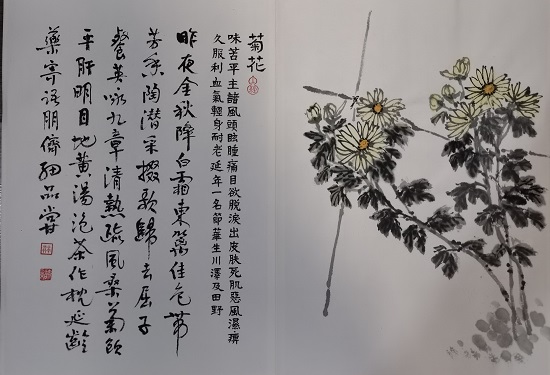 菊花
味苦平主諸風頭眩腫痛目欲脫淚出皮肤死肌惡風濕痹
久服利血氣輕身耐老延年一名節華生川澤及田野
昨夜金秋降白霜東籬佳色帶
芳香陶潛采掇歌歸去屈子
餐英咏九章清熱疏風桑菊飲
平肝明目地黃湯泡茶作枕延齡
藥寄語朋儕細品嘗